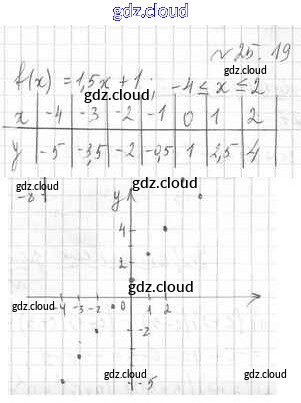 gdz.cloud
№25.19
f(x) = 1,5x + 1; -4 ≤ x ≤ 2
gdz.cloud
x -4 -3 -2 -1 0 1 2
gdz.cloud gdz.cloud
y -5 -3,5 -2 -0,5 1 2,5 4
gdz.cloud
-8 y gdz.cloud
4
2
gdz.cloud
gdz.cloud gdz.cloud
-4 -3 -2 -1 0 1 2
-2
gdz.cloud
-5